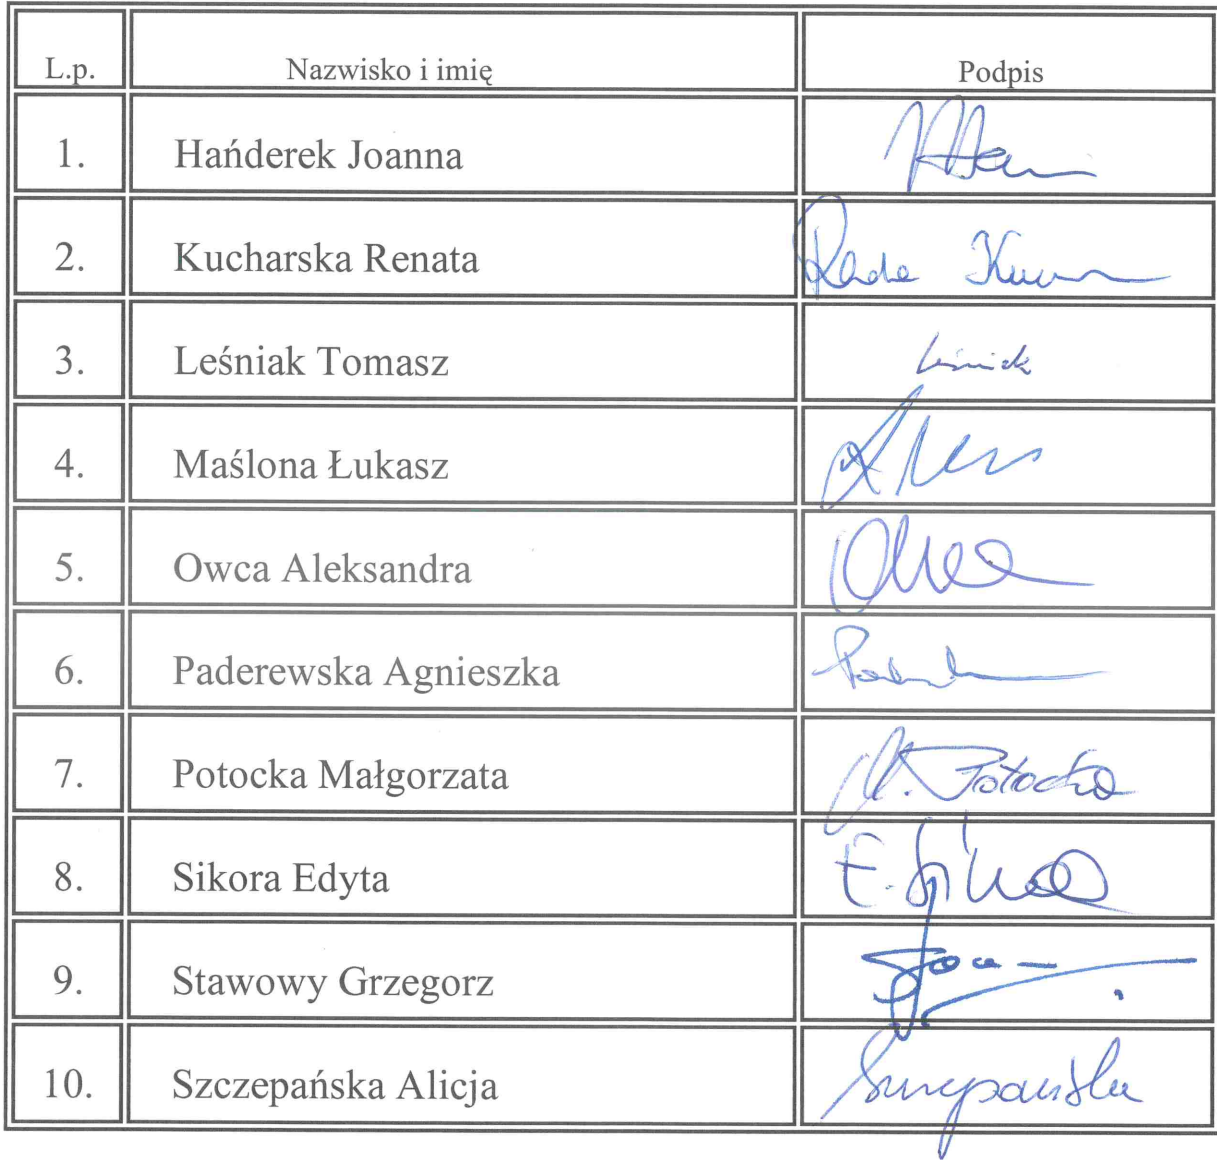 L.p. Nazwisko i imię Podpis
1. Hańderek Joanna
2. Kucharska Renata
3. Leśniak Tomasz Leśniak
4. Maślona Łukasz
5. Owca Aleksandra
6. Paderewska Agnieszka
7. Potocka Małgorzata M. Potocka
8. Sikora Edyta E. Sikora
9. Stawowy Grzegorz
10. Szczepańska Alicja Szczepańska